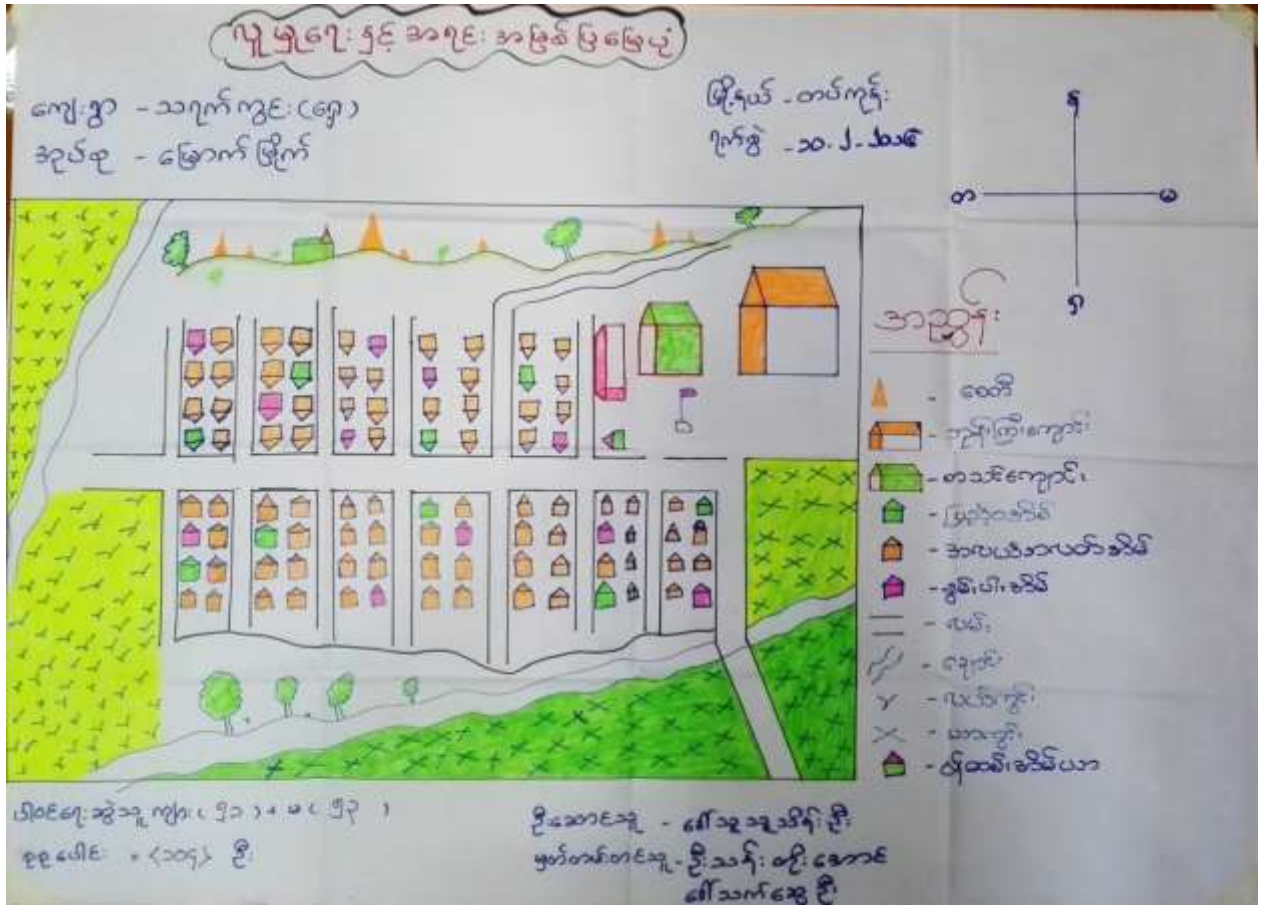 လူမှုရေးနှင့် အရင်းအမြစ်ပြမြေပုံ
ကျေးရွာ - သရက်ကွင်း(ရှေ့)
အုပ်စု - မြောက်မြိုက်
မြို့နယ် - တပ်ကုန်း
ရက်စွဲ - ၁၀-၂-၂၀၁၆
န
တ
မ
ရ
အညွှန်း
- စေတီ
- ဘုန်းကြီးကျောင်း
- စာသင်ကျောင်း
- ပြည့်ဝအိမ်
- အလယ်အလတ်အိမ်
- နွမ်းပါးအိမ်
- လမ်း
- ချောင်း
- လယ်ကွင်း
- ယာကွင်း
- ဝန်ထမ်းအိမ်ယာ
ပါဝင်ရေးဆွဲသူ ကျား (၅၁) + မ (၅၃)
စုစုပေါင်း = (၁၀၄) ဦး
ဦးဆောင်သူ - ဒေါ်သူသူသိန်းဦး
မှတ်တမ်းတင်သူ - ဦးသန်းတိုးအောင်
ဒေါ်သက်ဆွေဦး